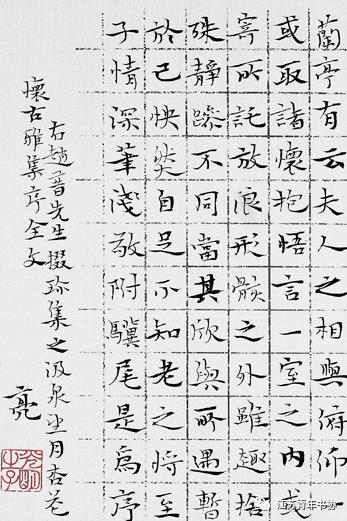 蘭亭有云夫人之相與俯仰一
或取諸懷抱悟言一室之內或
寄所託放浪形骸之外雖趣捨
殊靜躁不同當其欣與所遇暫
於己快然自足不知老之將至
子情深筆淺敬附驥尾是為序
右趙普先生掇珍集之汲泉坐月杏花
懷古雅集序全文
亮
江苏青年书协